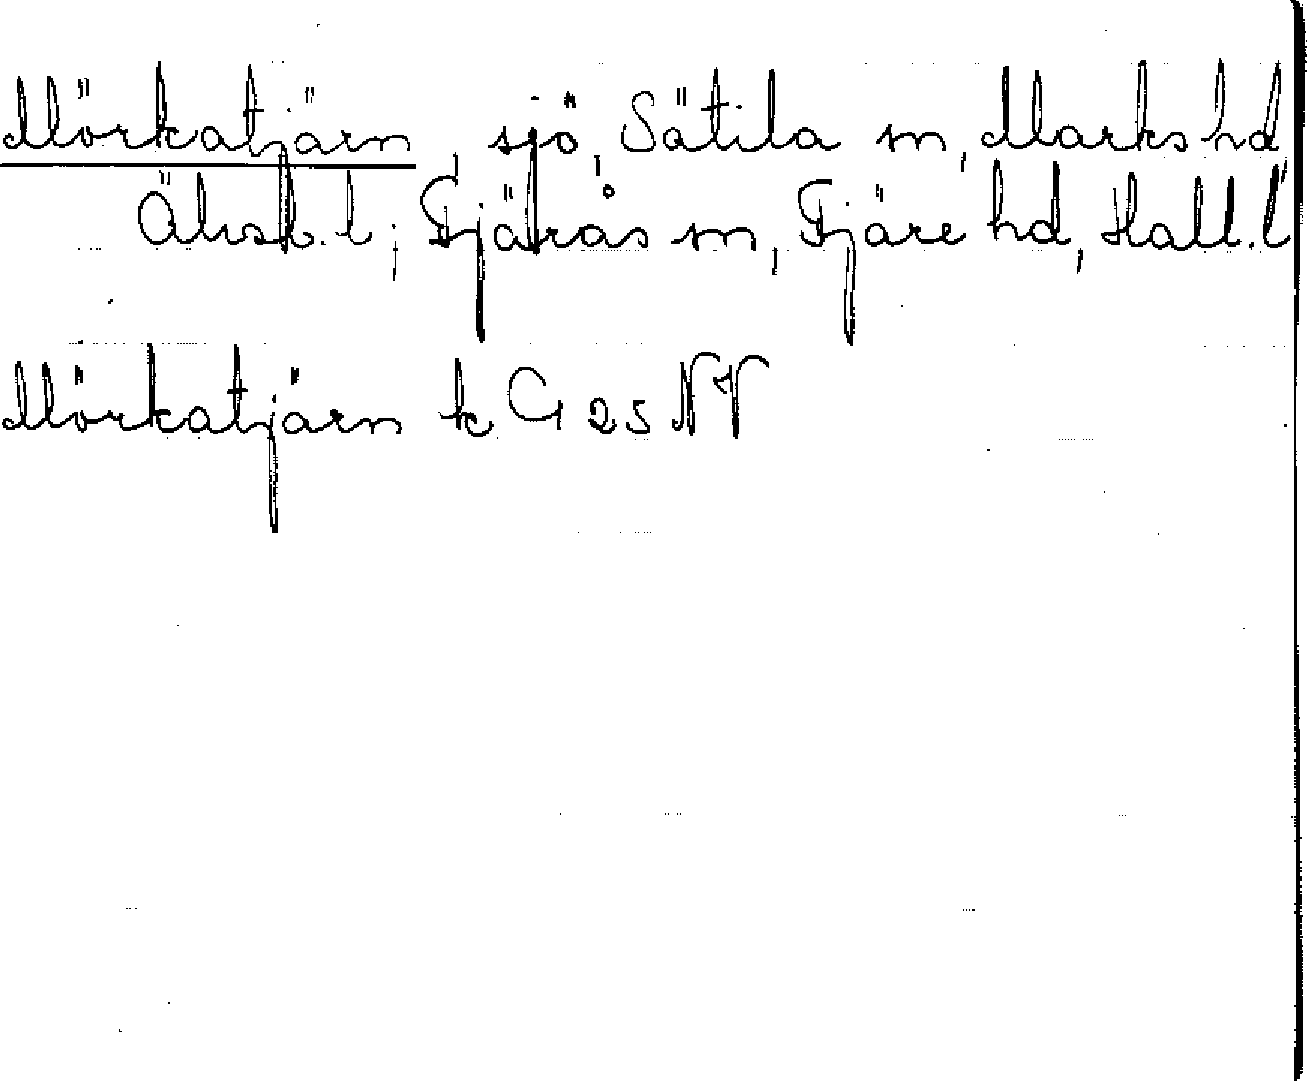 Mörkatjärn, sjö, Sätila sn, Marks hd,
Älvsb. l; Fjärås sn, Fjäre hd, Hall. l
Mörkatjärn k G 25 NV